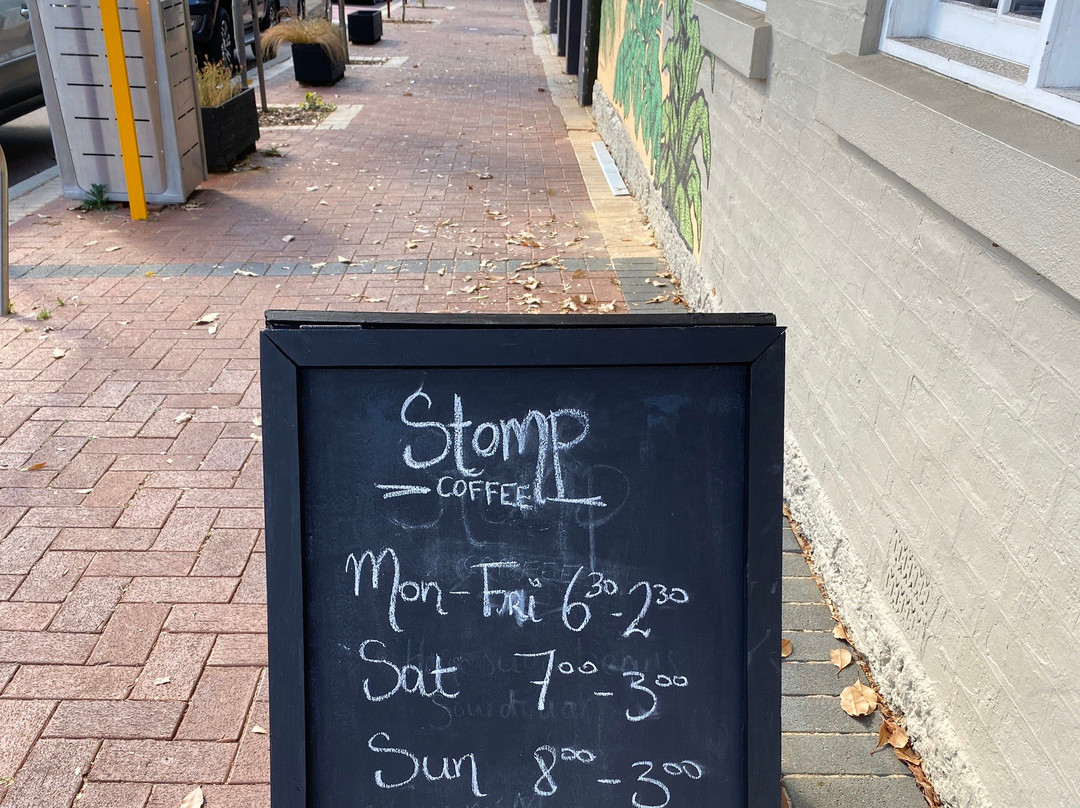 Stomp
COFFEE
Mon - Fri 6³⁰ - 2³⁰
Sat 7⁰⁰ - 3⁰⁰
Sun 8⁰⁰ - 3⁰⁰